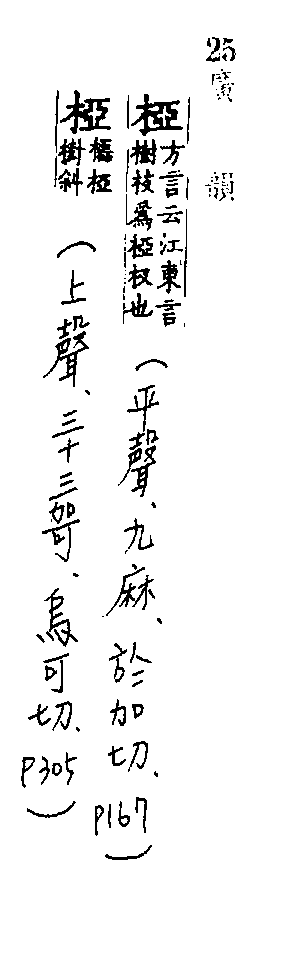 25 廣韻
椏 方言云江東言樹枝爲椏杈也 (平聲、九麻、於加切、P167)
椏 橠椏樹斜 (上聲、三十三哿、烏可切、P305)